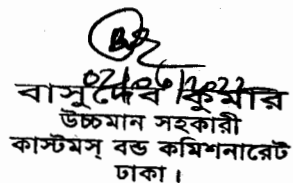 02/06/2022
বাসুদেব কুমার
উচ্চমান সহকারী
কাস্টমস্ বন্ড কমিশনারেট
ঢাকা।